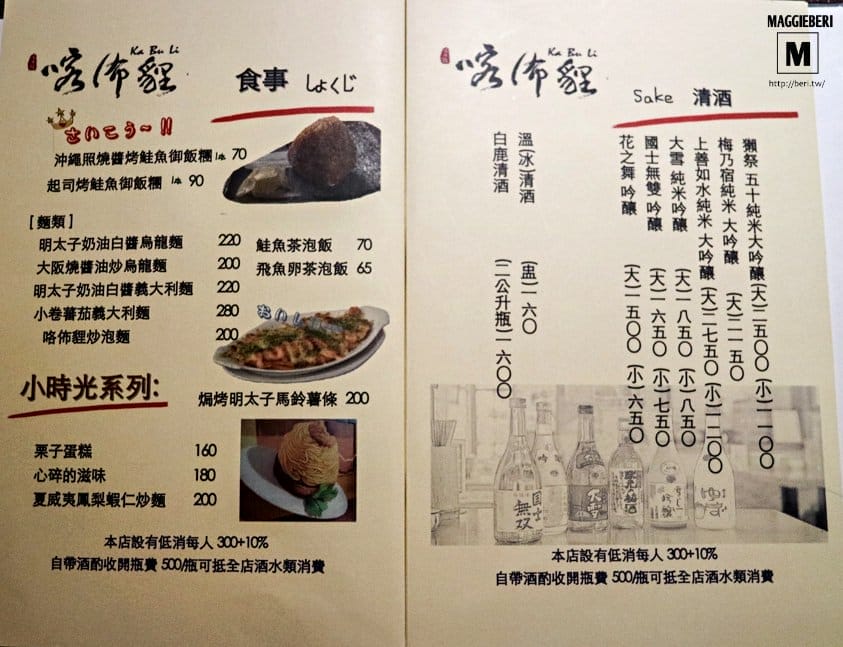 MAGGIEBERI
M
http://beri.tw/
Ka Bu Li
喀佈貍
食事 しょくじ
さいこう~!!
沖繩照燒醬烤鮭魚御飯糰 1串 70
起司烤鮭魚御飯糰 1串 90
[麵類]
明太子奶油白醬烏龍麵 220
大阪燒醬油炒烏龍麵 200
明太子奶油白醬義大利麵 220
小卷蕃茄義大利麵 280
咯佈貍炒泡麵 200
鮭魚茶泡飯 70
飛魚卵茶泡飯 65
おいし
焗烤明太子馬鈴薯條 200
小時光系列:
栗子蛋糕 160
心碎的滋味 180
夏威夷鳳梨蝦仁炒麵 200
本店設有低消每人 300+10%
自帶酒酌收開瓶費 500/瓶可抵全店酒水類消費
Ka Bu Li
喀佈貍
Sake 清酒
獺祭 五十純米大吟釀(大)二五〇〇(小)一一〇〇
梅乃宿純米 大吟釀 (大)三一五〇
上善如水純米 大吟釀(大)二七五〇(小)一二〇〇
大雪 純米吟釀 (大)一八五〇(小)八五〇
國士無雙 吟釀 (大)一六五〇(小)七五〇
花之舞 吟釀 (大)一五〇〇(小)六五〇
溫(冰)清酒 (盅)一六〇
白鹿清酒 (二公升瓶)一六〇〇
国士無双
大雪
ゆず
本店設有低消每人 300+10%
自帶酒酌收開瓶費 500/瓶可抵全店酒水類消費